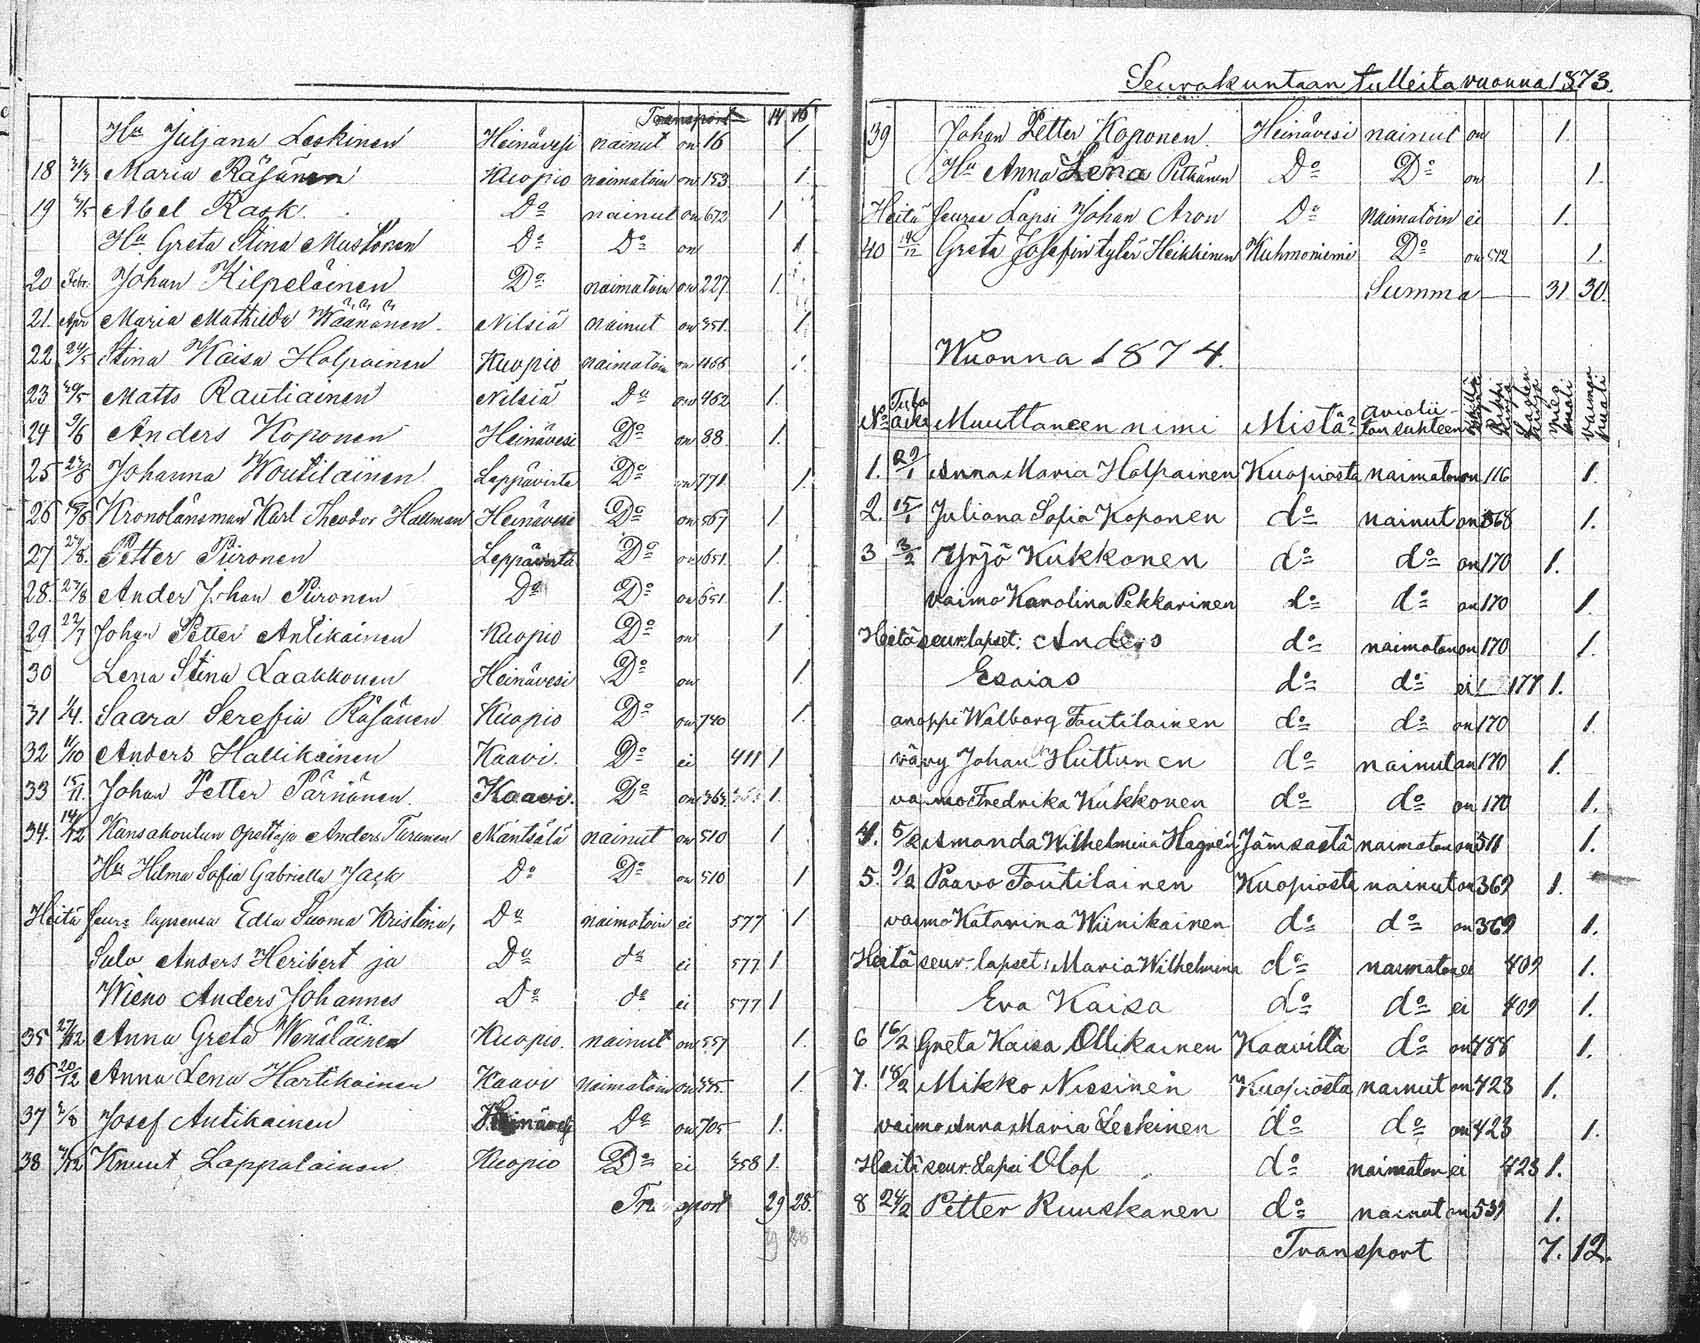 Transport 14 16
Hu Juljana Leskinen Heinävesi nainut on 16 1.
18 Maria Räsänen Kuopio naimatoin on 153 1.
19 Abel Rask Do nainut on 672 1
Hu Greta Stina Mustonen Do Do on 1
20 Febr. Johan Kilpeläinen Do naimatoin on 227. 1.
21. Apr Maria Mathilda Wäänänen. Nilsiä nainut on 351. 1.
22 24/5 Stina Kaisa Holpainen Kuopio naimatoin on 1.
23 Matts Rautiainen Nilsiä Do on 462 1.
24 9/6 Anders Koponen Heinävesi Do on 88 1.
25 Johanna Woutilainen Leppävirta Do on 771. 1.
26 Kronolänsman Karl Theodor Hallman Heinävesi Do on 567 1
27 Petter Piironen Leppävirta Do on 651. 1.
28. 27/8 Ander Johan Piironen Do Do on 651 1.
29 22/7 Johan Petter Antikainen Kuopio Do on 1
30 Lena Stina Laakkonen Heinävesi Do on 1
31 1/4. Saara Serefia Räsänen Kuopio Do on 740 1.
32 Anders Hallikainen Kaavi. Do ei 411 1
33 15/11. Johan Petter Pärnänen. Kaavi. Do on 363. 1.
34. 14/12 Kansakoulun opettaja Anders Turunen Mäntsälä nainut on 510 1
Hu Hilma Sofia Gabriella Jack Do Do on 510 1
Heitä seura lapsensa Edla Suoma Kristina, Do naimatoin ei 577 1
Sulo Anders Heribert ja Do do ei 577 1
Wieno Anders Johannes Do do ei 577 1
35 27/12 Anna Greta Wenäläinen Kuopio. nainut on 557 1.
36 20/12 Anna Lena Hartikainen Kaavi naimatoin on 1.
37 Josef Antikainen Heinävesi Do on 705 1.
38 Knuut Lappalainen Kuopio Do ei 358 1.
Transport 29 28.
Seurakuntaan tulleita vuonna 1873.
39 Johan Petter Koponen. Heinävesi nainut on 1.
Hu Anna Lena Pitkänen Do Do on 1.
Heitä seuraa Lapsi Johan Aron Do naimatoin ei 1.
40 Greta Josefin tytär Heikkinen Kuhmoniemi Do on 572 1.
Summa 31 30.
Wuonna 1874.
No Tulo aika Muuttaneen nimi Mistä? aviolii- ton suhteen Rippi kirja Lasten kirja mies puoli vaimon puoli
1. 29/1 Anna Maria Holpainen Kuopiosta naimaton on 116 1.
2. 15/1 Juliana Sofia Koponen do nainut on 368 1.
3 3/2 Yrjö Kukkonen do do on 170 1.
vaimo Karolina Pekkarinen do do on 170 1.
Heitä seur. lapset: Anders do naimaton on 170 1.
Esaias do do ei 177 1.
anoppi Walborg Toutilainen do do on 170 1.
vävy Johan Huttunen do nainut on 170 1.
vaimo Fredrika Kukkonen do do on 170 1.
4. 5/2 Amanda Wilhelmina Hagrén Jämsästä naimaton on 511 1.
5. 9/2 Paavo Toutilainen Kuopiosta nainut on 369 1.
vaimo Katarina Wiinikainen do do on 369 1.
Heitä seur. lapset: Maria Wilhelmina do naimaton ei 409 1.
Eva Kaisa do do ei 409 1.
6 16/2 Greta Kaisa Ollikainen Kaavilta do on 486 1.
7. 18/2 Mikko Nissinen Kuopiosta nainut on 423 1.
vaimo Anna Maria Leskinen do do on 423 1.
Heitä seur. Lapsi Olof do naimaton ei 423 1.
8 24/2 Petter Ruuskanen do nainut on 539 1.
Transport 7. 12.